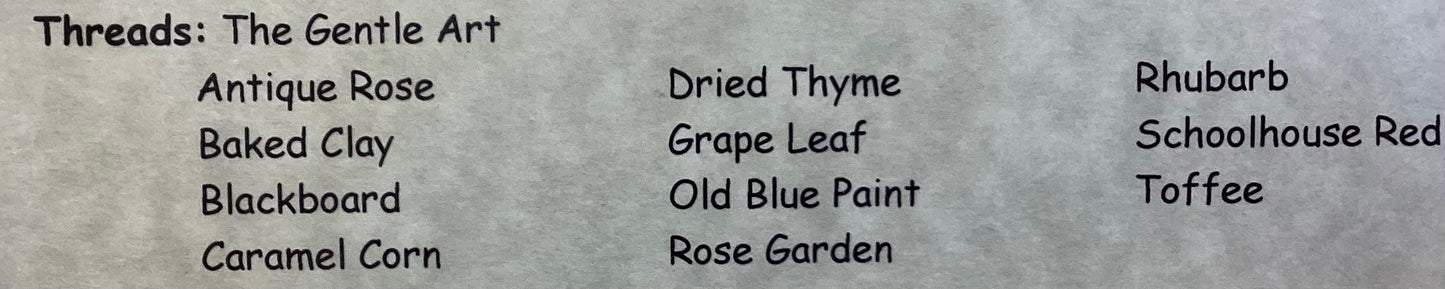 Threads: The Gentle Art
Antique Rose
Baked Clay
Blackboard
Caramel Corn
Dried Thyme
Grape Leaf
Old Blue Paint
Rose Garden
Rhubarb
Schoolhouse Red
Toffee